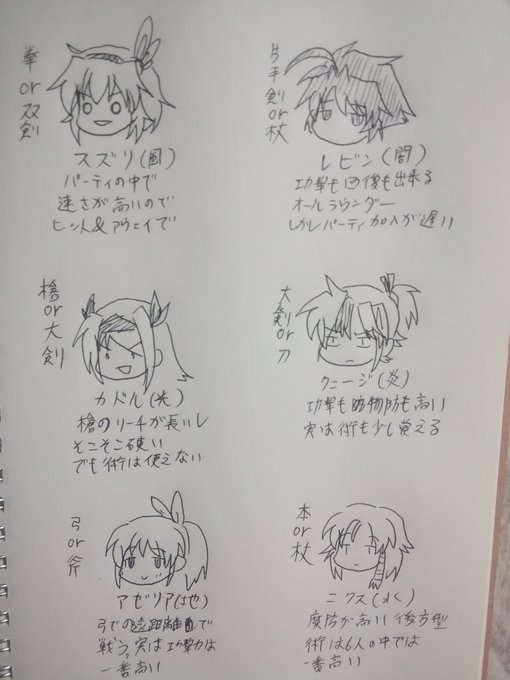 拳or双剣
スズリ(風)
パーティの中で
速さが高いので
ヒット&アウェイで
片手剣or杖
レビン(闇)
攻撃も回復も出来る
オールラウンダー
しかしパーティ加入が遅い
槍or大剣
カドル(光)
槍のリーチが長いし
そこそこ硬い
でも術は使えない
大剣or刀
クニージ(炎)
攻撃も物防も高い
実は術も少し覚える
弓or斧
アゼリア(地)
弓での遠距離で
戦う。実は攻撃力は
一番高い
本or杖
ニクス(水)
魔防が高い後方型
術は6人の中では
一番高い